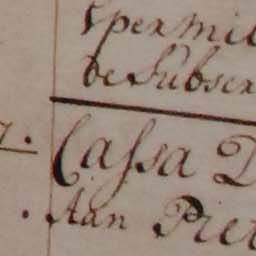 per mil
de Subscr
7. Cassa D
. Aan Piet